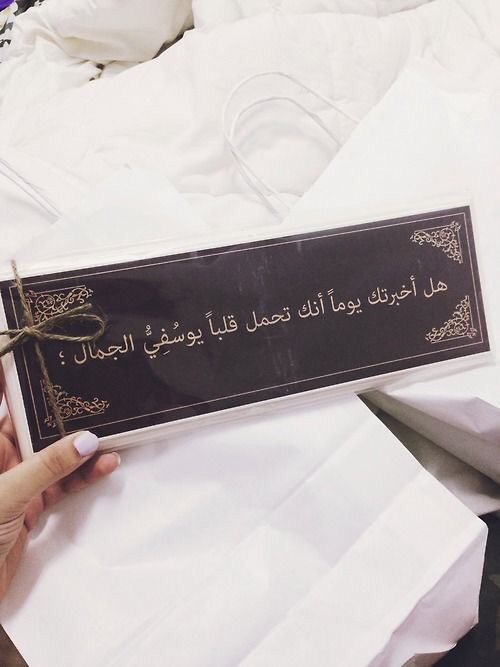 هل أخبرتك يوماً أنك تحمل قلباً يوسُفِيُّ الجمال ؛